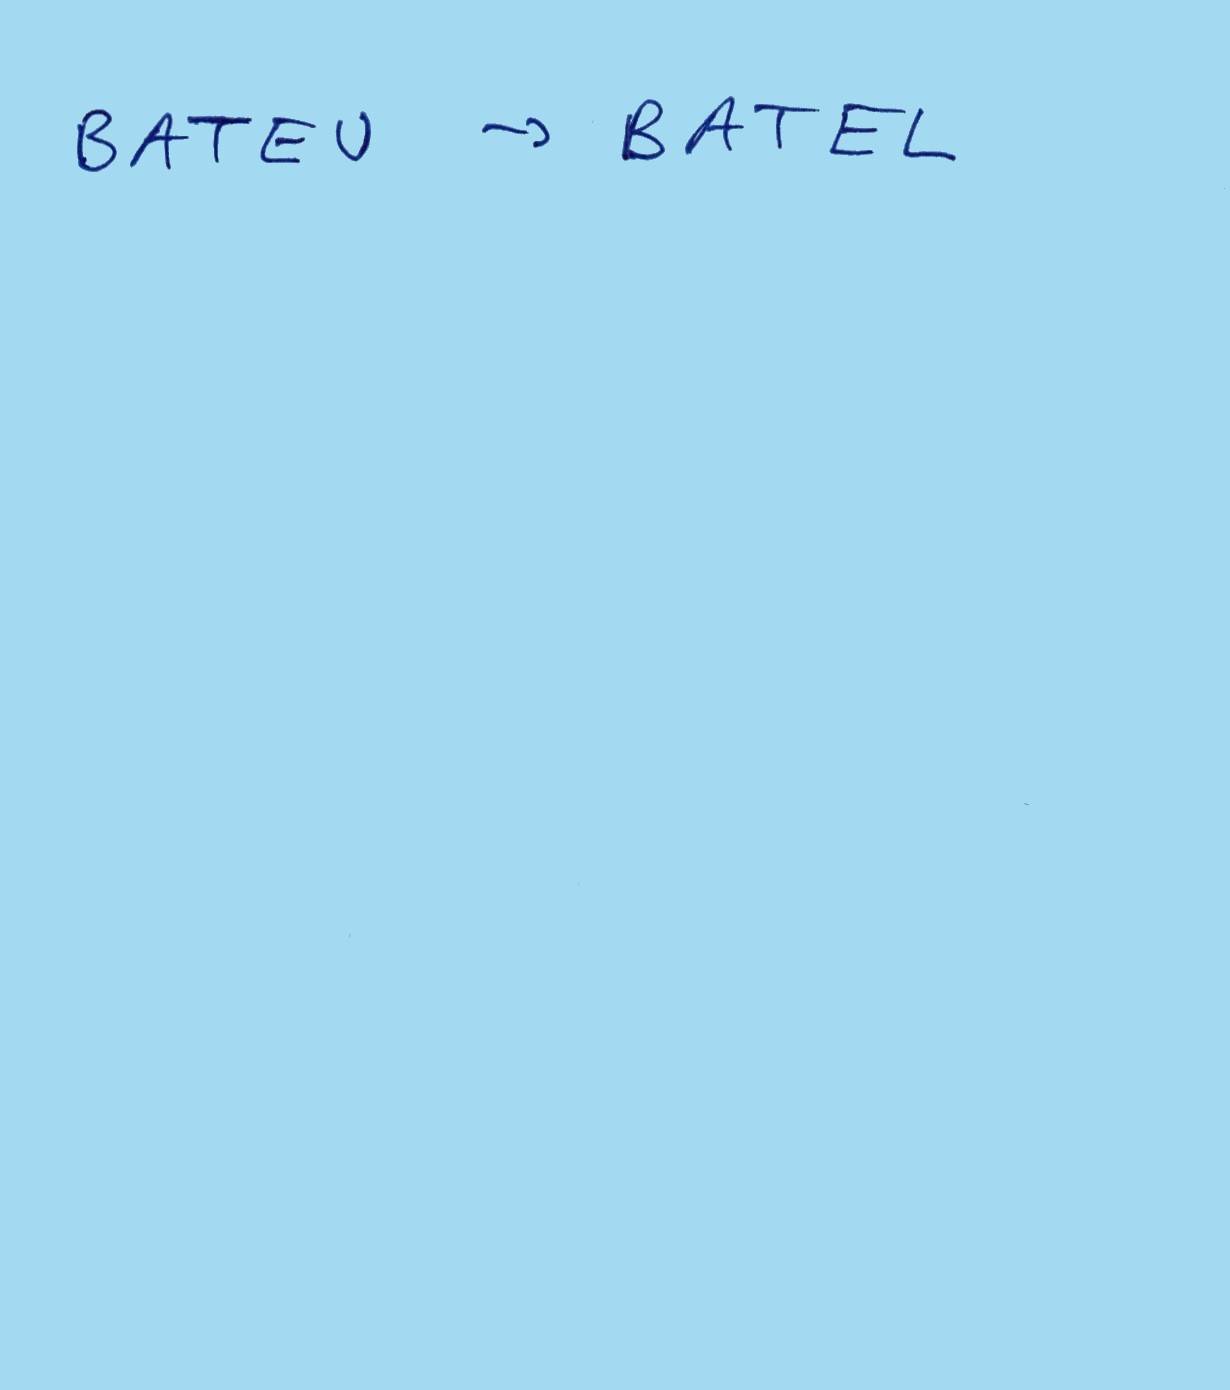 BATEU → BATEL